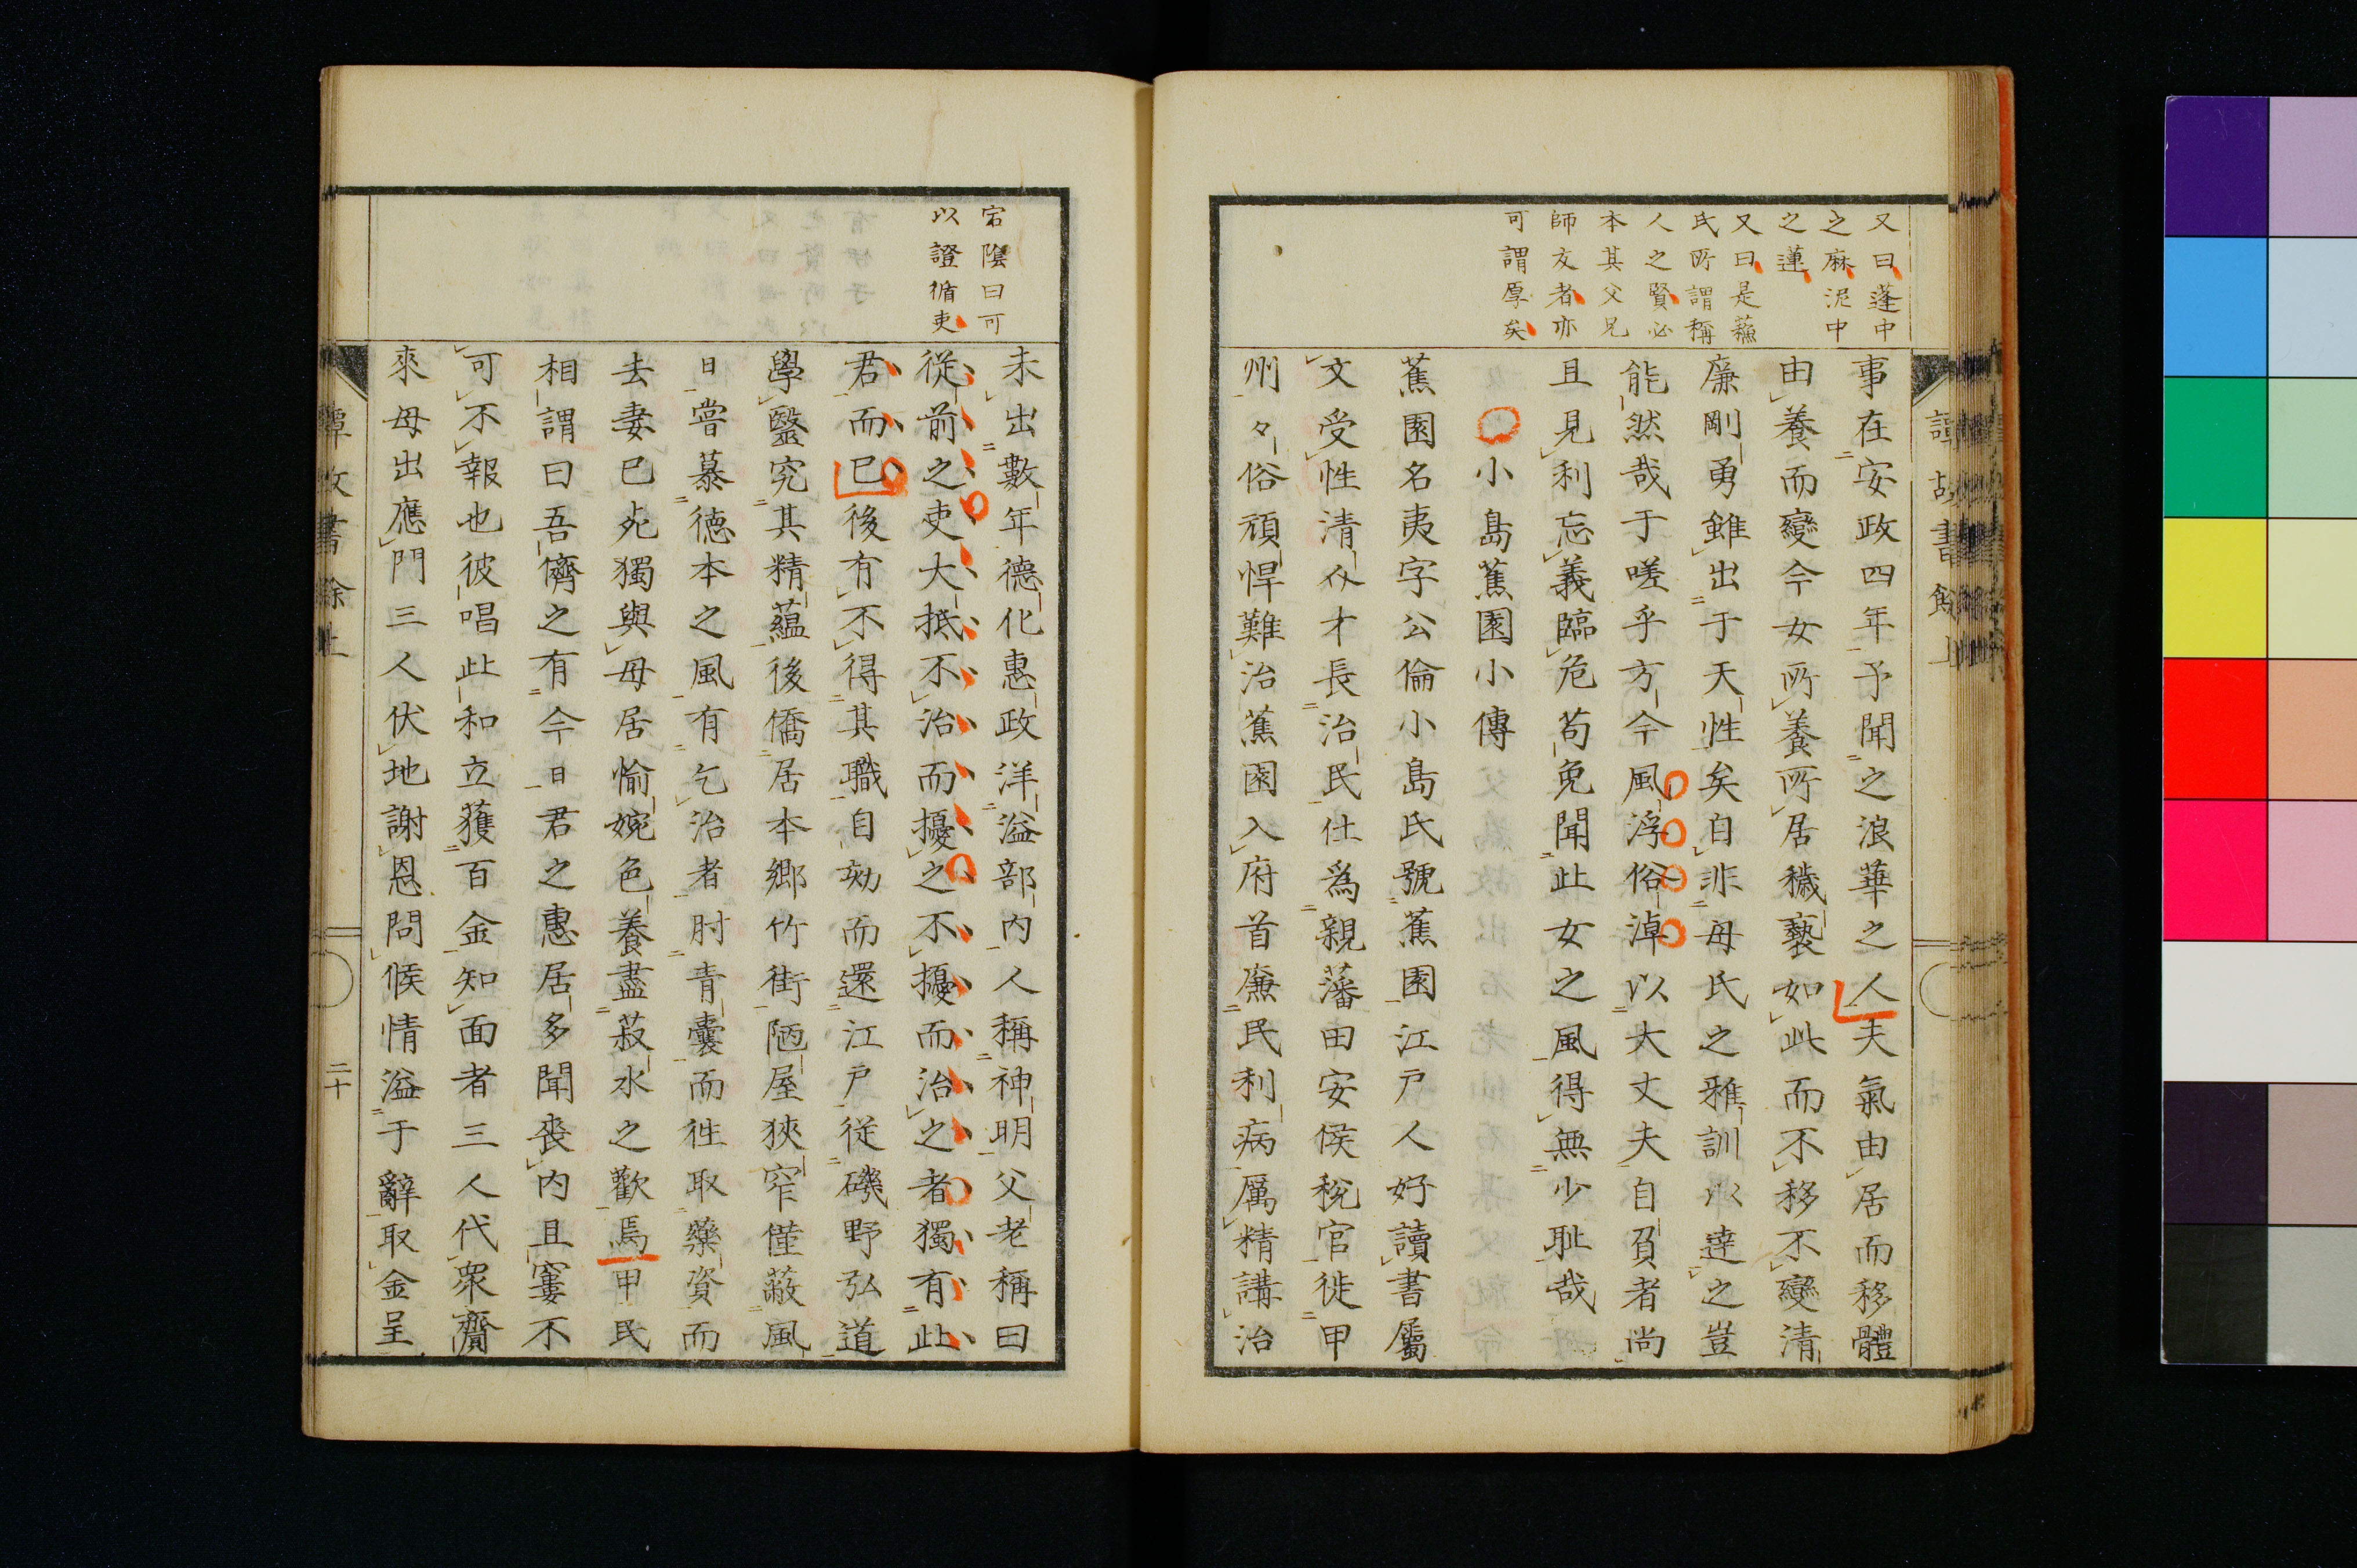 又曰蓬中
之麻泥中
之蓮
又曰是蘓
氏所謂稱
人之賢必
本其父兄
師友者亦
可謂厚矣
事在安政四年予聞之浪華之人夫氣由居而移體
由養而變今女所養所居穢褻如此而不移不變清
廉剛勇雖出于天性矣自非母氏之雅訓以達之豈
能然哉于嗟乎方今風浮俗淖以大丈夫自負者尚
且見利忘義臨危苟免聞此女之風得無少耻哉
小島蕉園小傳
蕉園名夷字公倫小島氏號蕉園江戸人好讀書屬
文受性清介才長治民仕爲親藩田安侯稅官徙甲
州々俗頑悍難治蕉園入府首廉民利病厲精講治
宕陰曰可
以證循吏
未出數年德化惠政洋溢部內人稱神明父老稱曰
從前之吏大抵不治而擾之不擾而治之者獨有此
君而已後有不得其職自劾而還江戸從磯野弘道
學醫究其精蘊後僑居本郷竹街陋屋狹窄僅蔽風
日嘗慕德本之風有乞治者肘青囊而徃取藥資而
去妻已死獨與母居愉婉色養盡菽水之歡焉甲民
相謂曰吾儕之有今日君之惠居多聞喪內且窶不
可不報也彼唱此和立獲百金知面者三人代衆齎
來母出應門三人伏地謝恩問候情溢于辭取金呈
二十